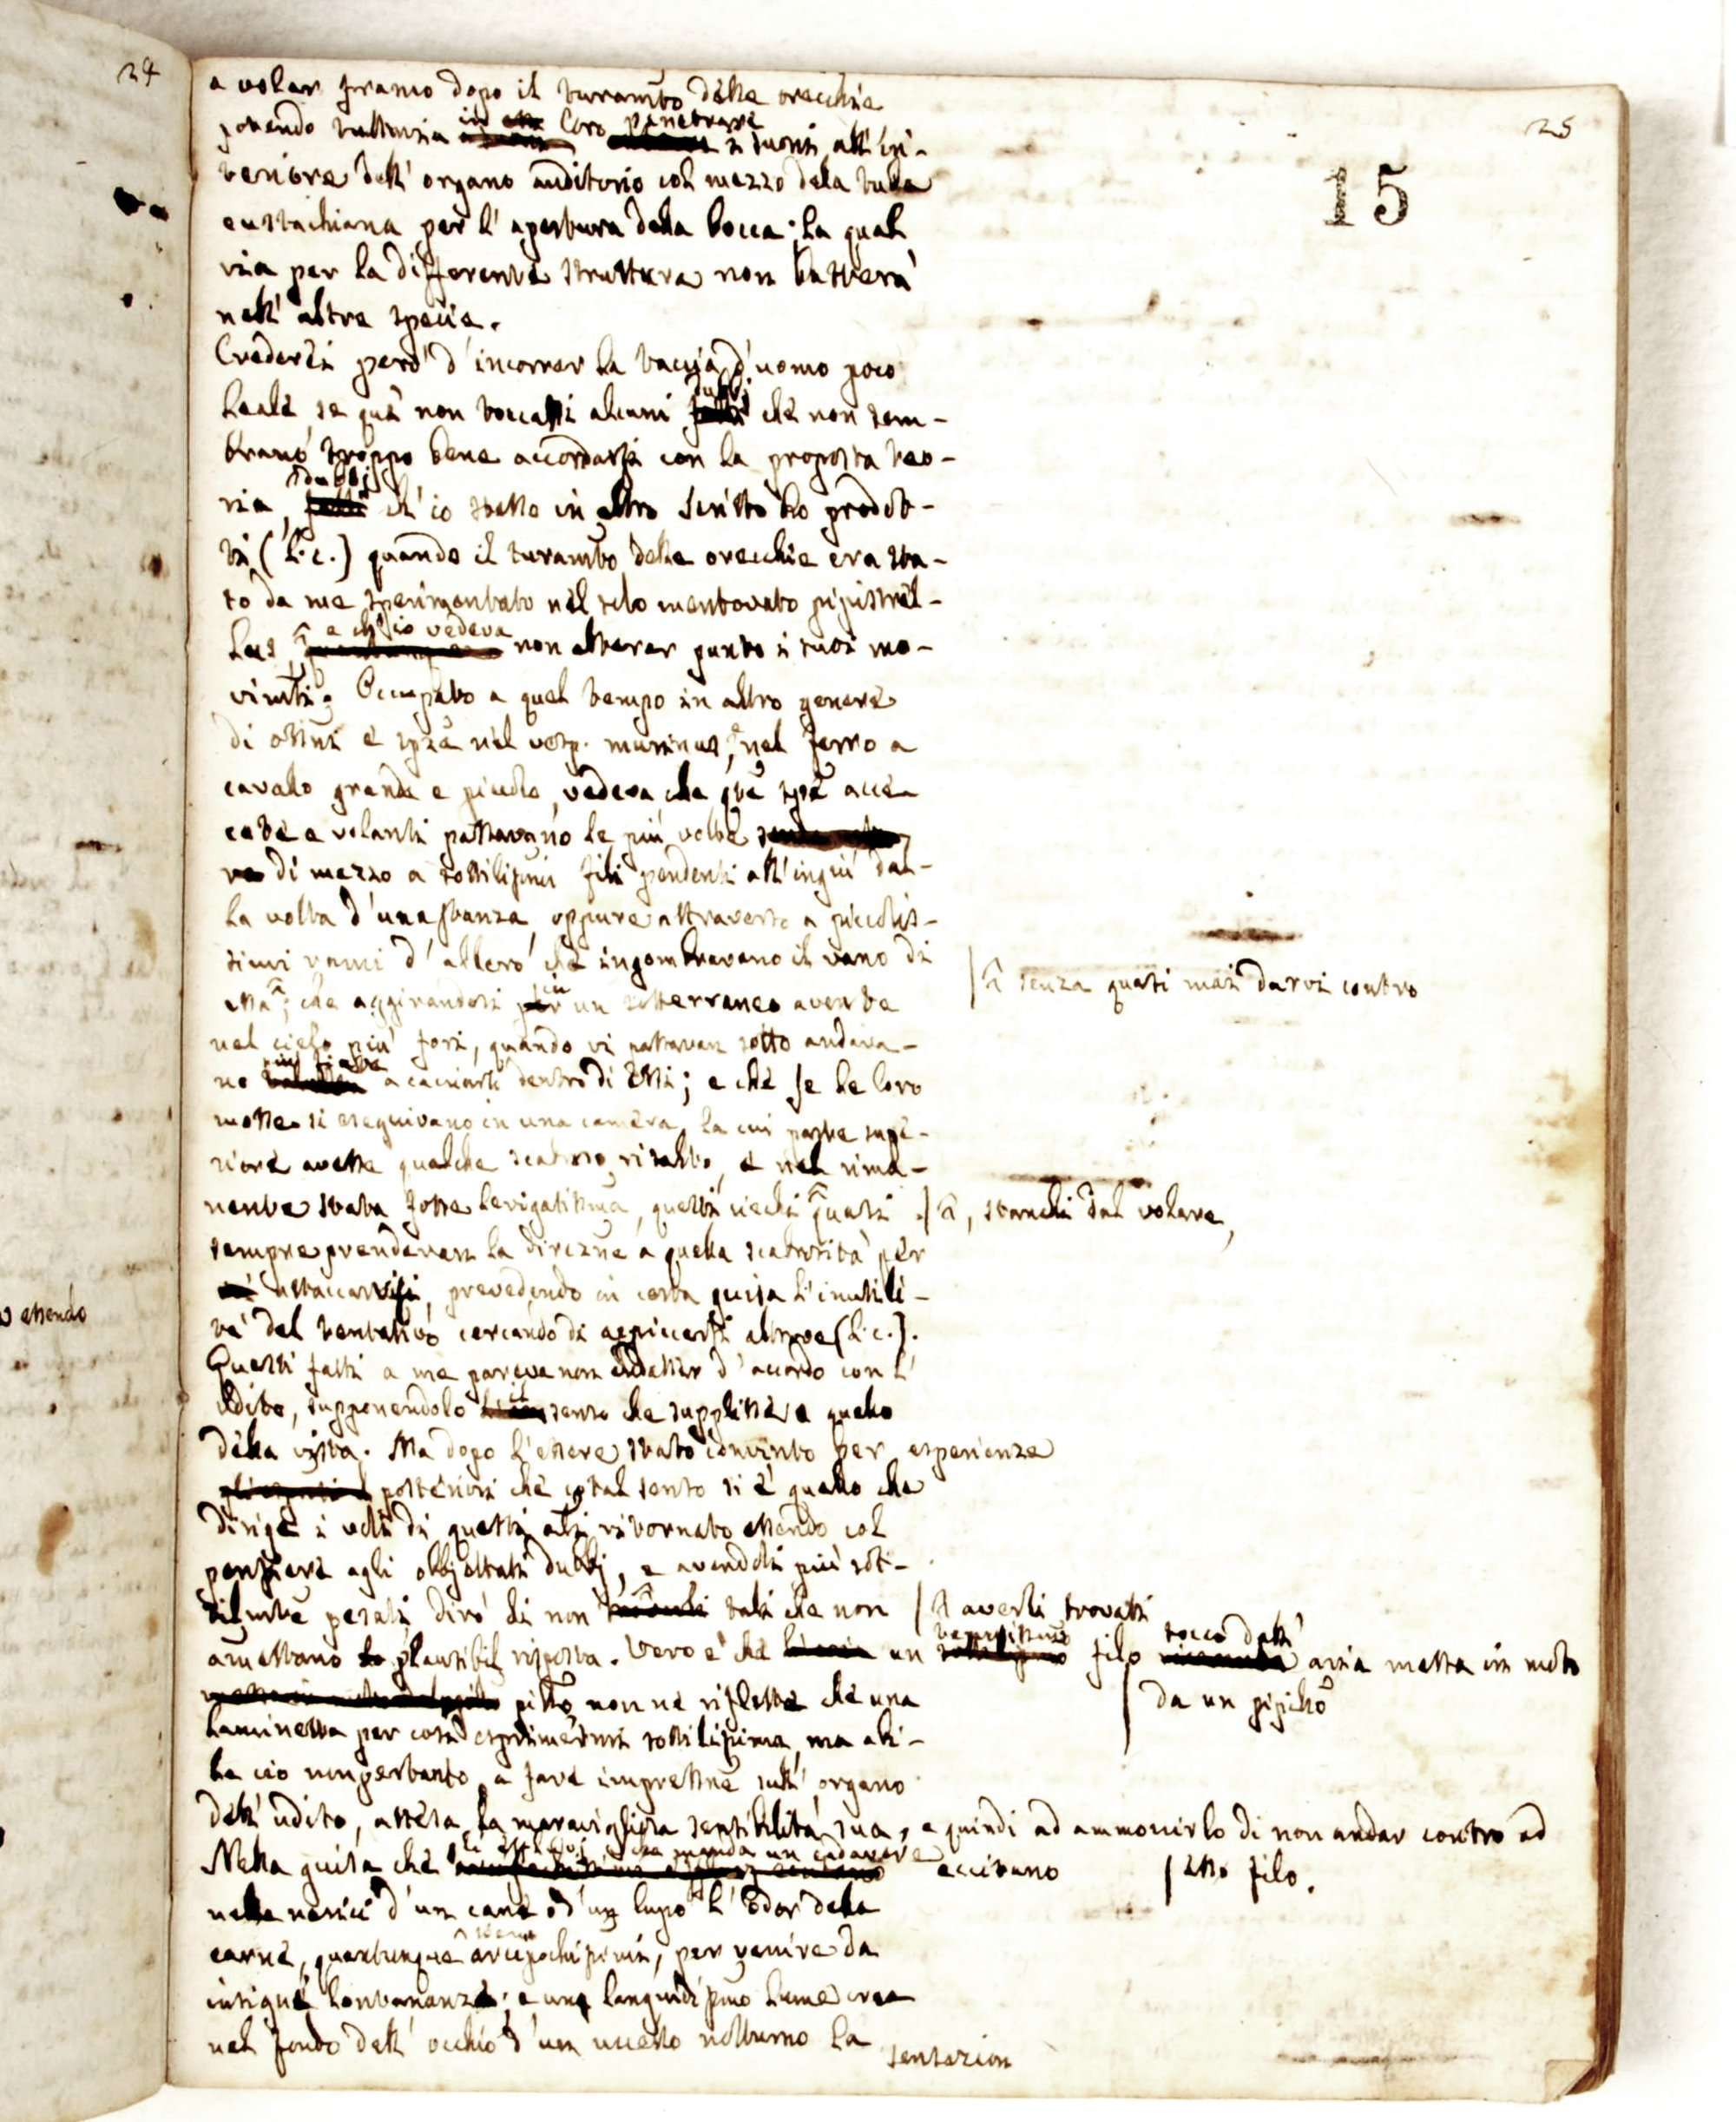 24
25
15
a volar franco dopo il turamto delle orecchie
potendo tuttavia in Loro penetrare i suoni all'in-
teriore dell'organo auditorio col mezzo dela tuba
eustachiana per l'apertura della bocca; la qual
via per la differente struttura non batterà
nell'altre specie.
Crederei però d'incorrer la taccia d'uomo poco
leale, se quì non toccassi alcuni dubbj che non sem-
brano troppo bene accordarsi con la proposta teo-
ria, dubbj ch'io stesso in altro scritto ho prodot-
ti (l.c.) quando il turamto delle orecchie era sta-
to da me sperimentato nel solo mentovato pipistrel-
lus, e ch'io vedeva non alterar punto i suoi mo-
vimti. Occupato a quel tempo in altro genere
di ossni e spze nel vesp. murinus, e nel ferro a
cavallo grande e piccolo, vedeva che qte spe acce-
cate e volanti passavano le più volte
di mezzo a sottilissimi fili pendenti all'ingiù dal-
la volta d'una stanza, oppure attraverso a piccolis-
simi rami d'albero che ingombravano il vano di
essa ^; che aggirandosi in un sotterraneo avente
^ senza quasi mai darvi contro
nel cielo più fori, quando vi passavan sotto andava-
no più fiate a cacciarsi dentro di essi; e che se le loro
mosse si eseguivano in una camera, la cui parte supe-
riore avesse qualche scabroso risalto, e nel rima-
nente stata fosse levigatissima, questi ciechi ^ quasi
^, stanchi dal volare,
sempre prendevan la direzne a quella scabrosità per
attaccarvisi, prevedendo in certa guisa l'inutili-
tà del tentativo cercando di appiccarsi altrove (l.c.).
Questi fatti a me pareva non andasser d'accordo con l'
udito, supponendolo il senso che supplisse a quello
della vista. Ma dopo l'essere stato convinto per esperienze
posteriori che cotal senso si è quello che
dirige i voli di questi ali, ritornato essendo col
pensiere agli obbjettati dubbj, e avendoli più sot-
tilmte pesati, dirò di non ^ tali che non
^ averli trovati
ammettano plausibil risposta. Vero è che un filo tocco dall'aria messa in moto
da un pipillo
pittro, non ne riflette che una
laminetta per così esprimermi sottilissima, ma abi-
le ciò nonpertanto a fare impressne sull'organo
dell'udito, attesa la maravigliosa sensibilità sua, e quindi ad ammonirlo di non andar contro ad
esso filo.
Nella guisa che gli effluvj che manda un cadavere eccitano
nelle narici d'un cane o d'un lupo l'odor della
carne, quantunque arcipochissimi, per venire da
insigne lontananza; e una languidissimo lume crea
nel fondo dell'occhio d'un uccello notturno la
sensazion
o essendo